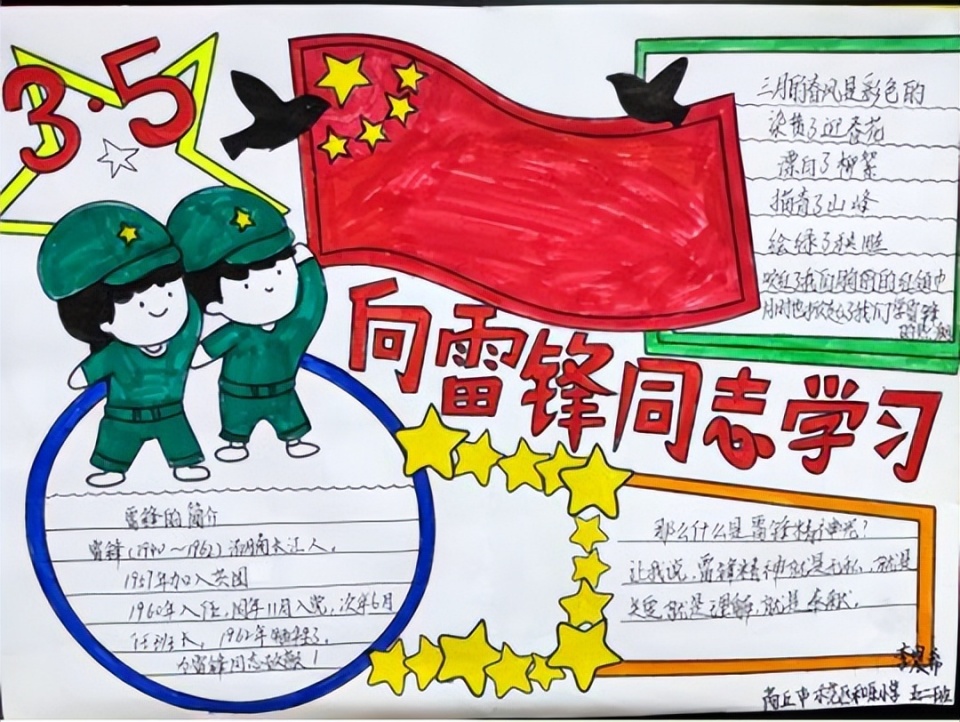 3·5
三月的春风是彩色的
染黄了迎春花
漂白了柳絮
描青了山峰
绘绿了
我们胸前的红领巾
我们学雷锋
向雷锋同志学习
雷锋的简介
雷锋(1940～1962)湖南长江人,
1957年加入共团
1960年入伍,同年11月入党,次年6月
任班长,1962年牺牲了,
令雷锋同志致敬!
那么什么是雷锋精神呢?
让我说,雷锋精神就是无私,就是
就是理解,就是奉献。
商丘市 小学 五二班